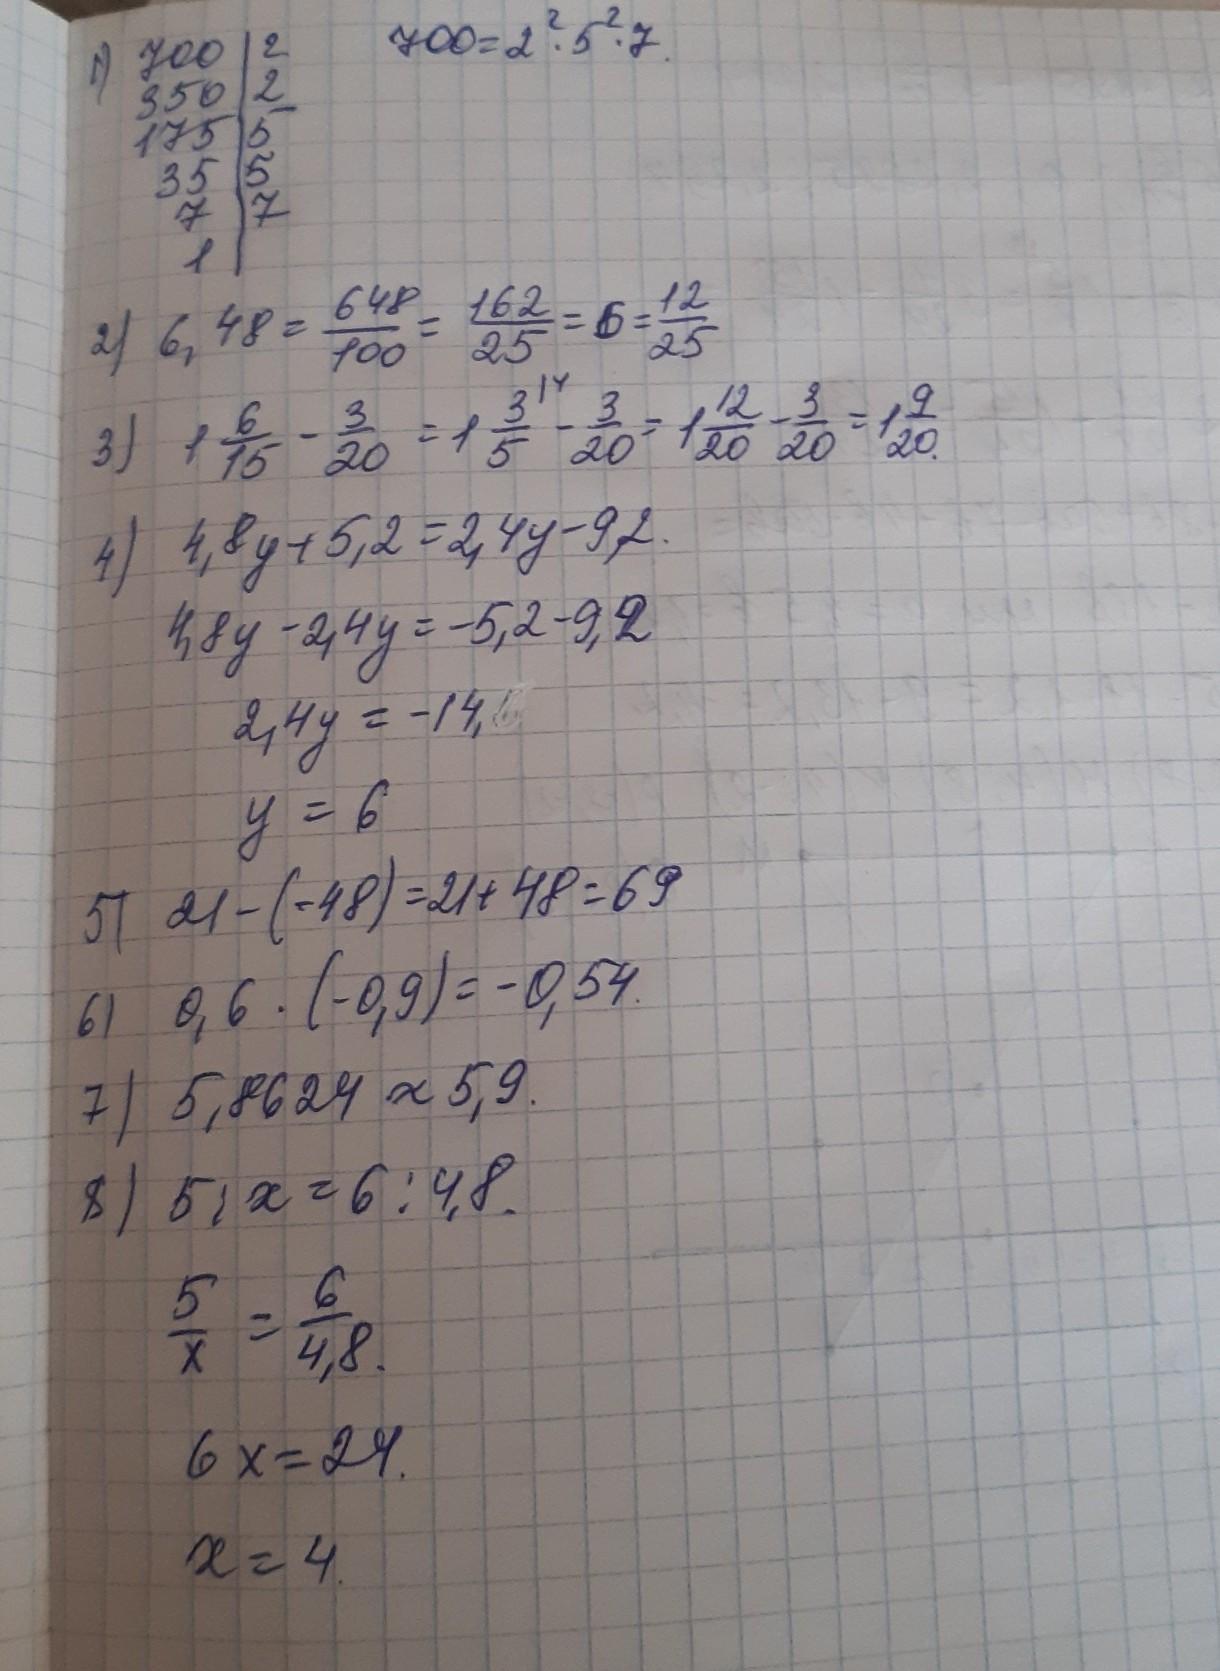 1) 700 | 2 700 = 2² · 5² · 7.
350 | 2
175 | 5
35 | 5
7 | 7
1 |
2) 6,48 = 648/100 = 162/25 = 6 = 12/25
3) 1 6/15 - 3/20 = 1 3/5 - 3/20 = 1 12/20 - 3/20 = 1 9/20.
4) 4,8y + 5,2 = 2,4y - 9,2.
4,8y - 2,4y = -5,2 - 9,2
2,4y = -14,
y = 6
5) 21 - (-48) = 21 + 48 = 69
6) 0,6 · (-0,9) = -0,54.
7) 5,8624 ≈ 5,9.
8) 5 : x = 6 : 4,8.
5/x = 6/4,8.
6x = 24.
x = 4.